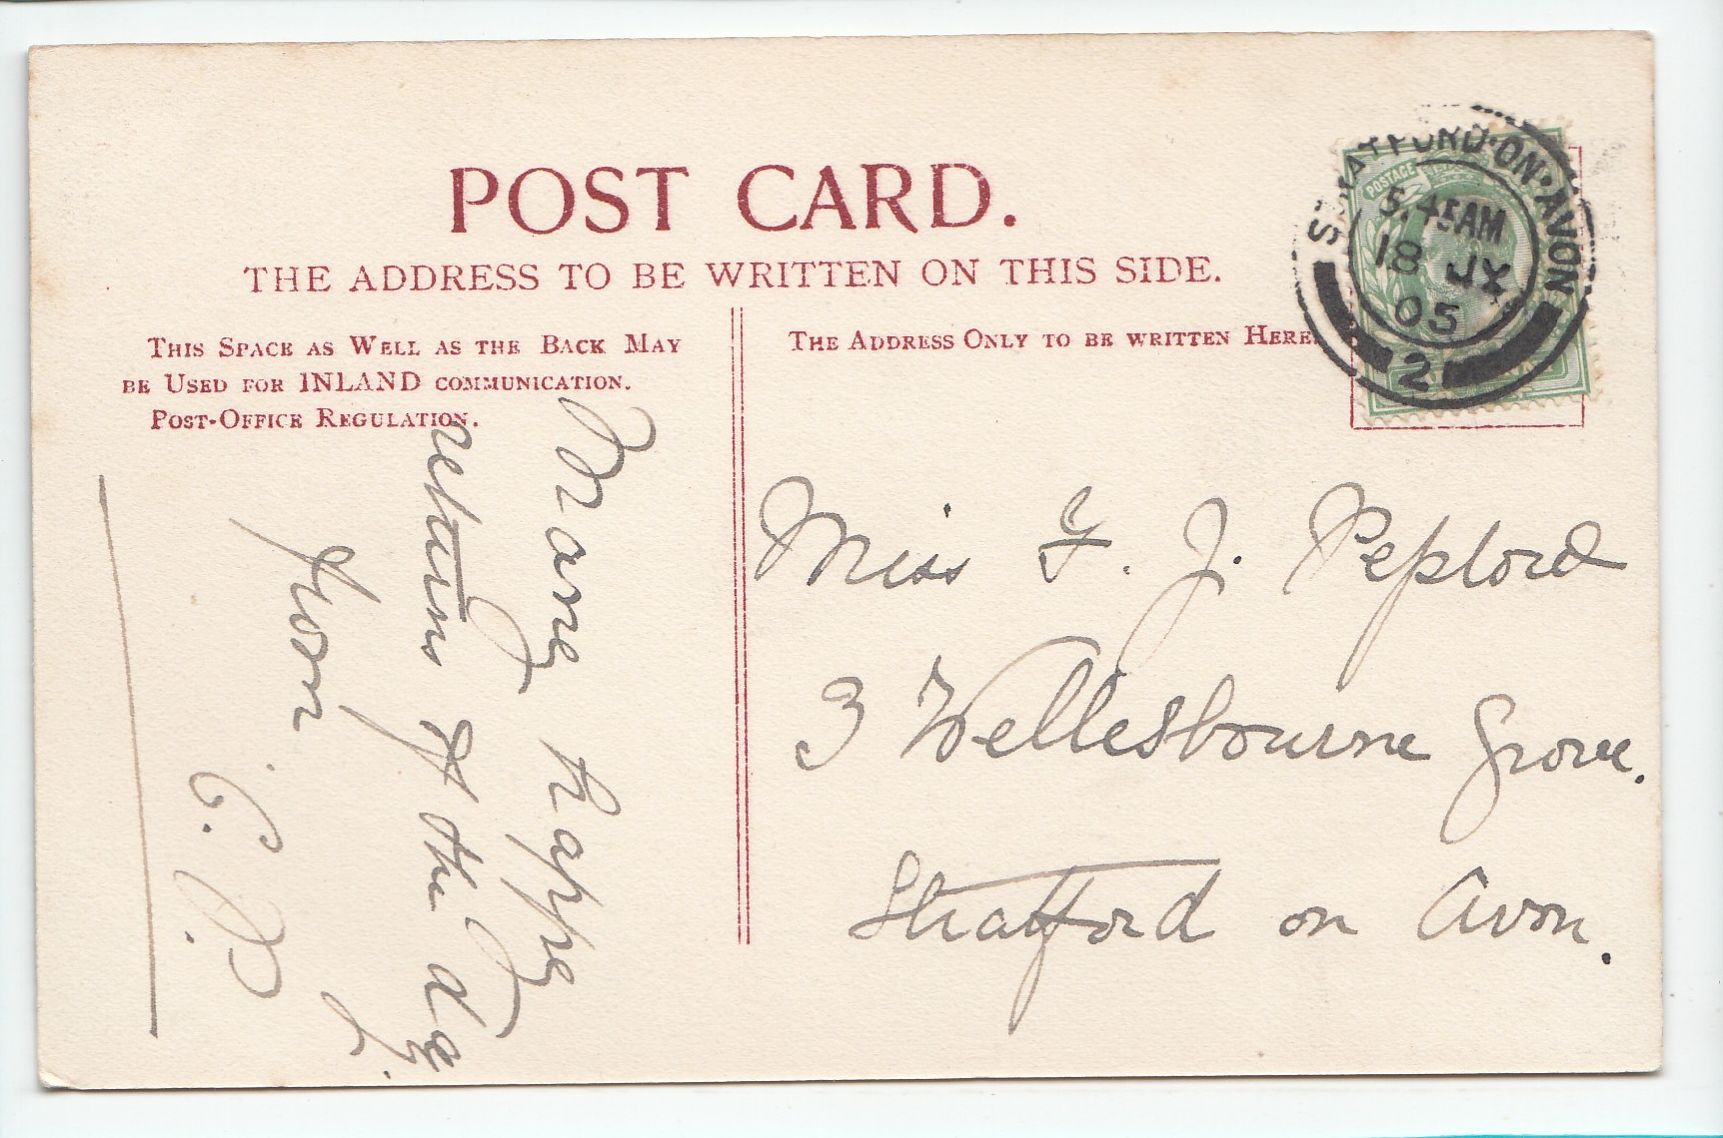 POST CARD.
THE ADDRESS TO BE WRITTEN ON THIS SIDE.
THIS SPACE AS WELL AS THE BACK MAY
BE USED FOR INLAND COMMUNICATION.
POST-OFFICE REGULATION.
THE ADDRESS ONLY TO BE WRITTEN HERE.
POSTAGE
STRATFORD-ON-AVON
5.45AM
18 JY
05
2
Many happy
returns of the day
from
C. P.
Miss F. J. Peplord
3 Wellesbourne Grove.
Stratford on Avon.